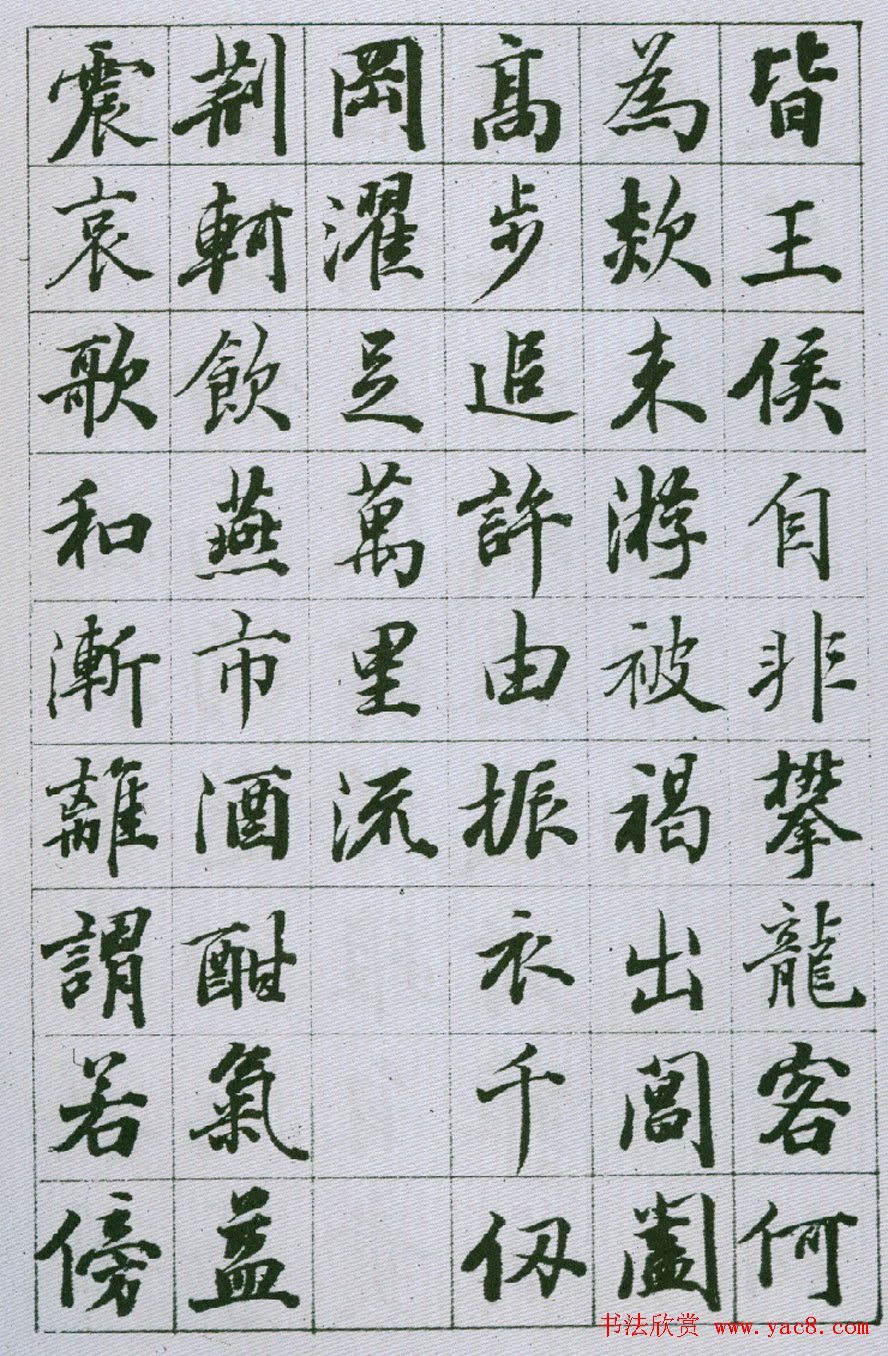 皆王侯自非攀龍客何
為欻来游被褐出閶闔
高步追許由振衣千仭
岡濯足萬里流
荆軻飲燕市酒酣氣益
震哀歌和漸離謂若傍
书法欣赏 www.yac8.com